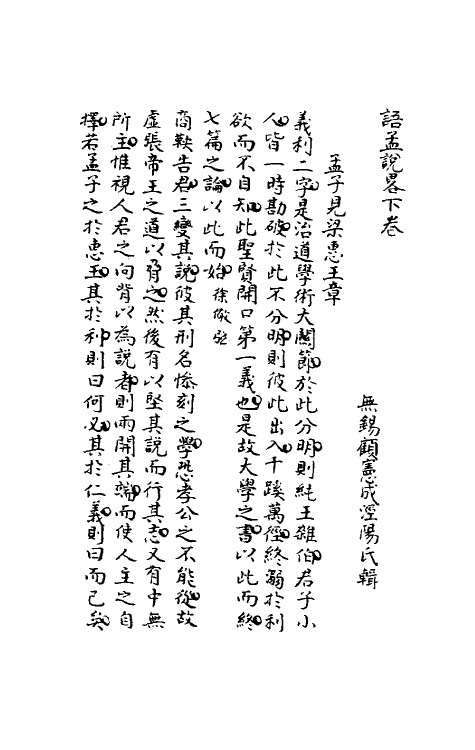 語孟說畧下卷
無錫顧憲成涇陽氏輯
孟子見梁惠王章
義利二字是治道學術大關節於此分明則純王雜伯君子小
人皆一時勘破於此不分明則彼此出入千蹊萬徑終溺於利
欲而不自知此聖賢開口第一義也是故大學之書以此而終
七篇之論以此而始徐儆弦
商鞅告君三變其說彼其刑名慘刻之學恐孝公之不能從故
虛張帝王之道以脅之然後有以堅其說而行其志又有中無
所主惟視人君之向背以為說者則兩開其端而使人主之自
擇若孟子之於惠王其於利則曰何必其於仁義則曰而已矣